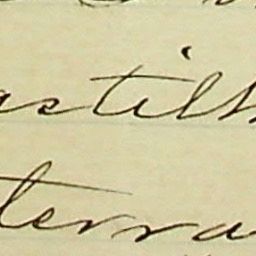 astilh
terra